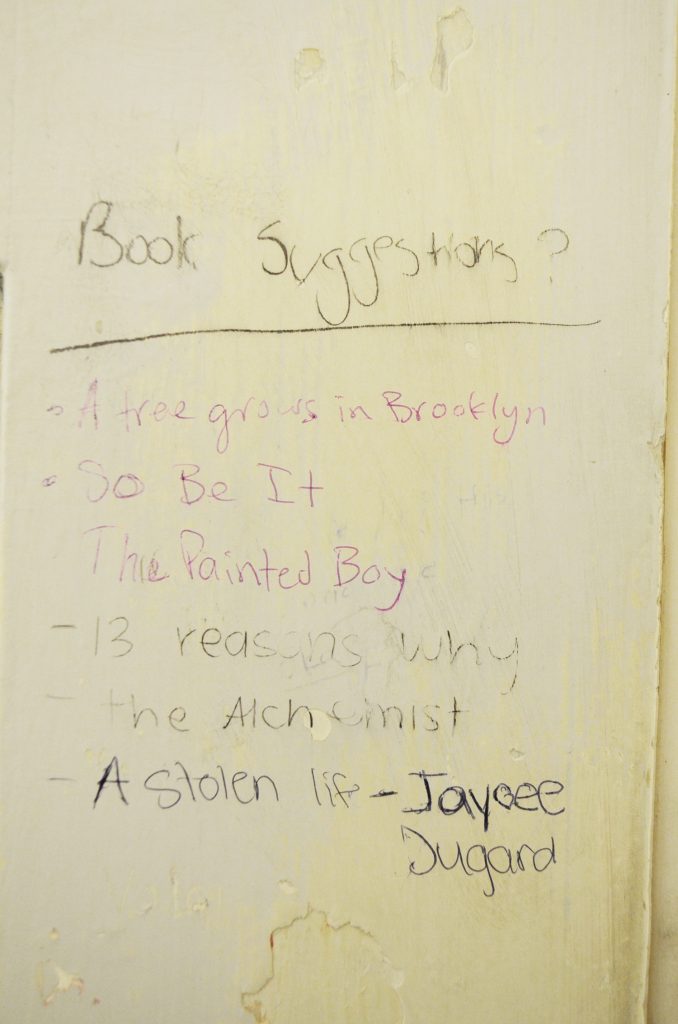 Book Suggestions?
• A tree grows in Brooklyn
• So Be It
The Painted Boy
- 13 reasons why
- the Alchemist
- A stolen life - Jaycee
Dugard